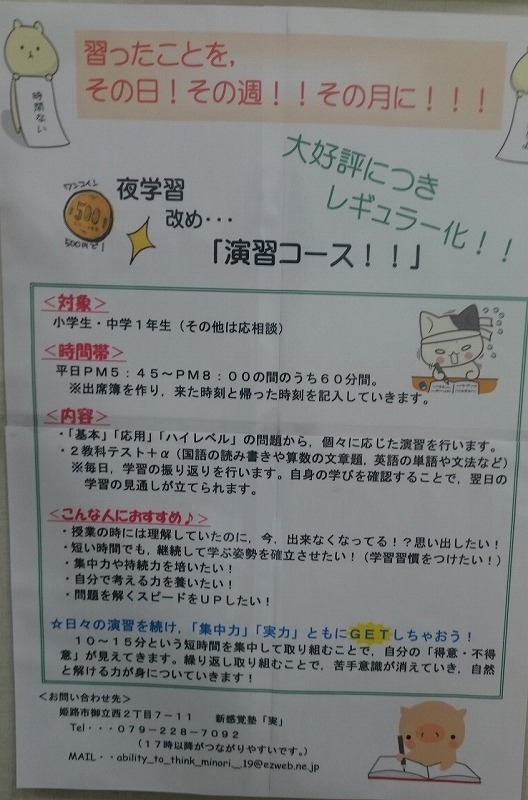 習ったことを，
その日！その週！！その月に！！！
時間ない
大好評につき
レギュラー化！！
ワンコイン
500
500円で！
夜学習
改め・・・
「演習コース！！」
＜対象＞
小学生・中学１年生（その他は応相談）
＜時間帯＞
平日ＰＭ５：４５～ＰＭ８：００の間のうち６０分間。
※出席簿を作り，来た時刻と帰った時刻を記入していきます。
＜内容＞
・「基本」「応用」「ハイレベル」の問題から，個々に応じた演習を行います。
・２教科テスト＋α（国語の読み書きや算数の文章題，英語の単語や文法など）
※毎日，学習の振り返りを行います。自身の学びを確認することで，翌日の
学習の見通しが立てられます。
＜こんな人におすすめ♪＞
・授業の時には理解していたのに，今，出来なくなってる！？思い出したい！
・短い時間でも，継続して学ぶ姿勢を確立させたい！（学習習慣をつけたい！）
・集中力や持続力を培いたい！
・自分で考える力を養いたい！
・問題を解くスピードをＵＰしたい！
☆日々の演習を続け，「集中力」「実力」ともにＧＥＴしちゃおう！
１０～１５分という短時間を集中して取り組むことで，自分の「得意・不得
意」が見えてきます。繰り返し取り組むことで，苦手意識が消えていき，自然
と解ける力が身についていきます！
＜お問い合わせ先＞
姫路市御立西２丁目７－１１　新感覚塾「実」
Tel・・・０７９－２２８－７０９２
（17時以降がつながりやすいです。）
MAIL・・ability_to_think_minori__.19@ezweb.ne.jp